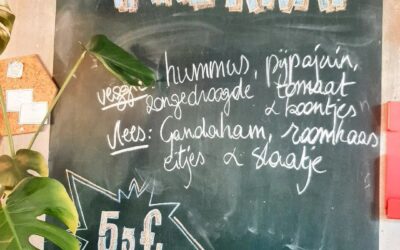 veggie: hummus, pijpajuin,
zongedroogde tomaat
& boontjes
vlees: Gandaham, roomkaas
eitjes & slaatje
5,5€